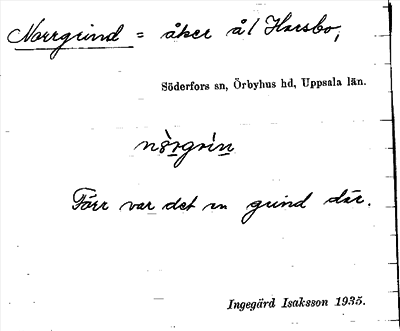 Norrgrind = åker å l Harsbo,
Söderfors sn, Örbyhus hd, Uppsala län.
nòrgrín
Förr var det en grind där.
Ingegärd Isaksson 1935.